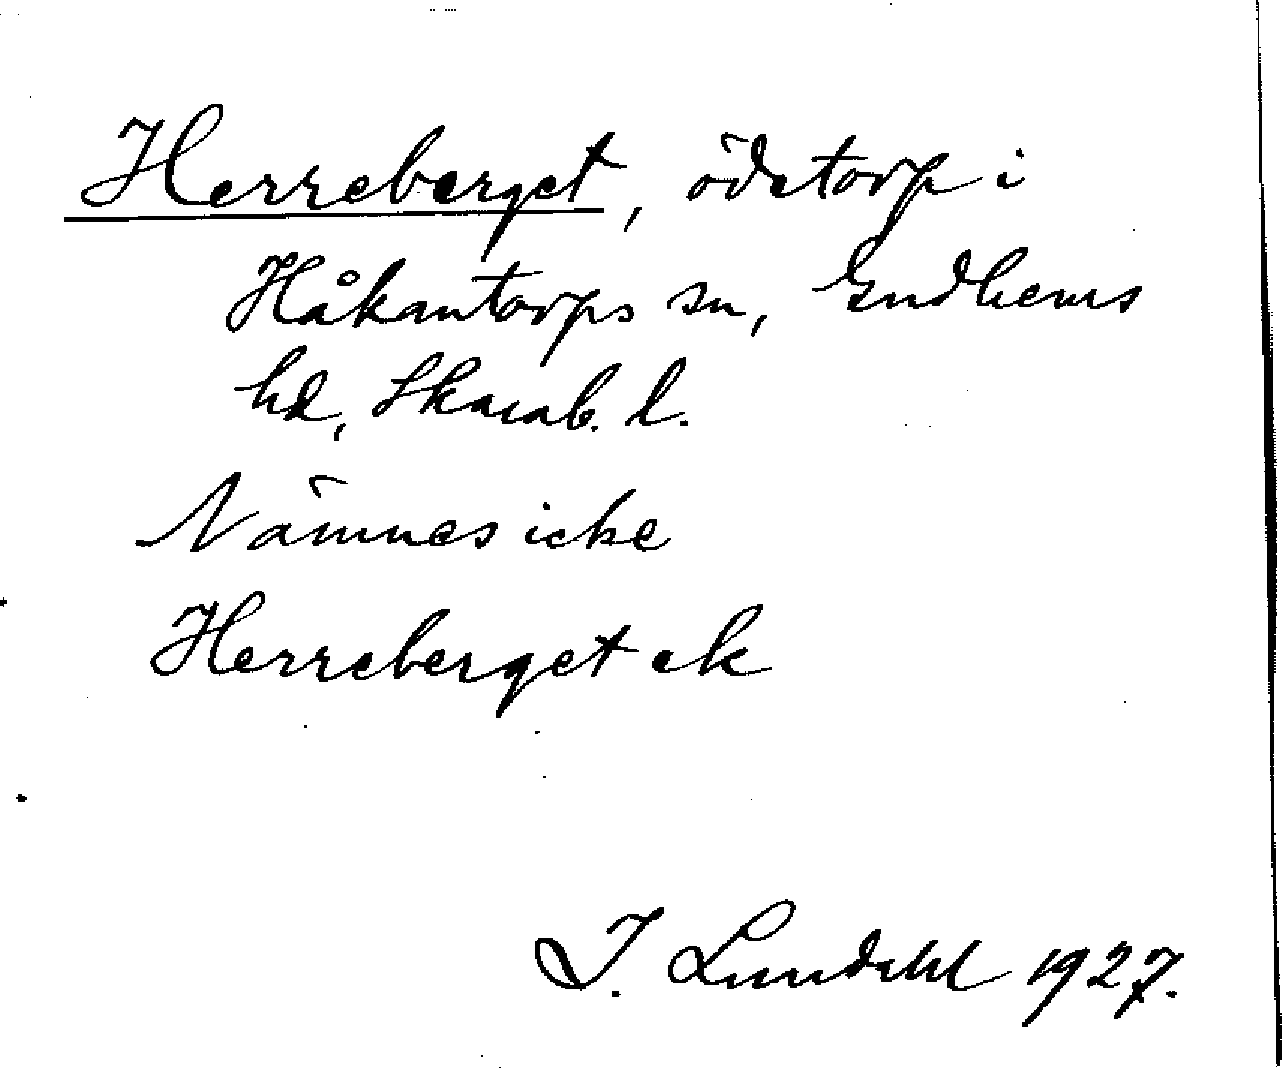 Herreberget, ödetorp i
Håkantorps sn, Gudhems
hd, Skarab. l.
Nämnes icke
Herreberget ek
I. Lundahl 1927.